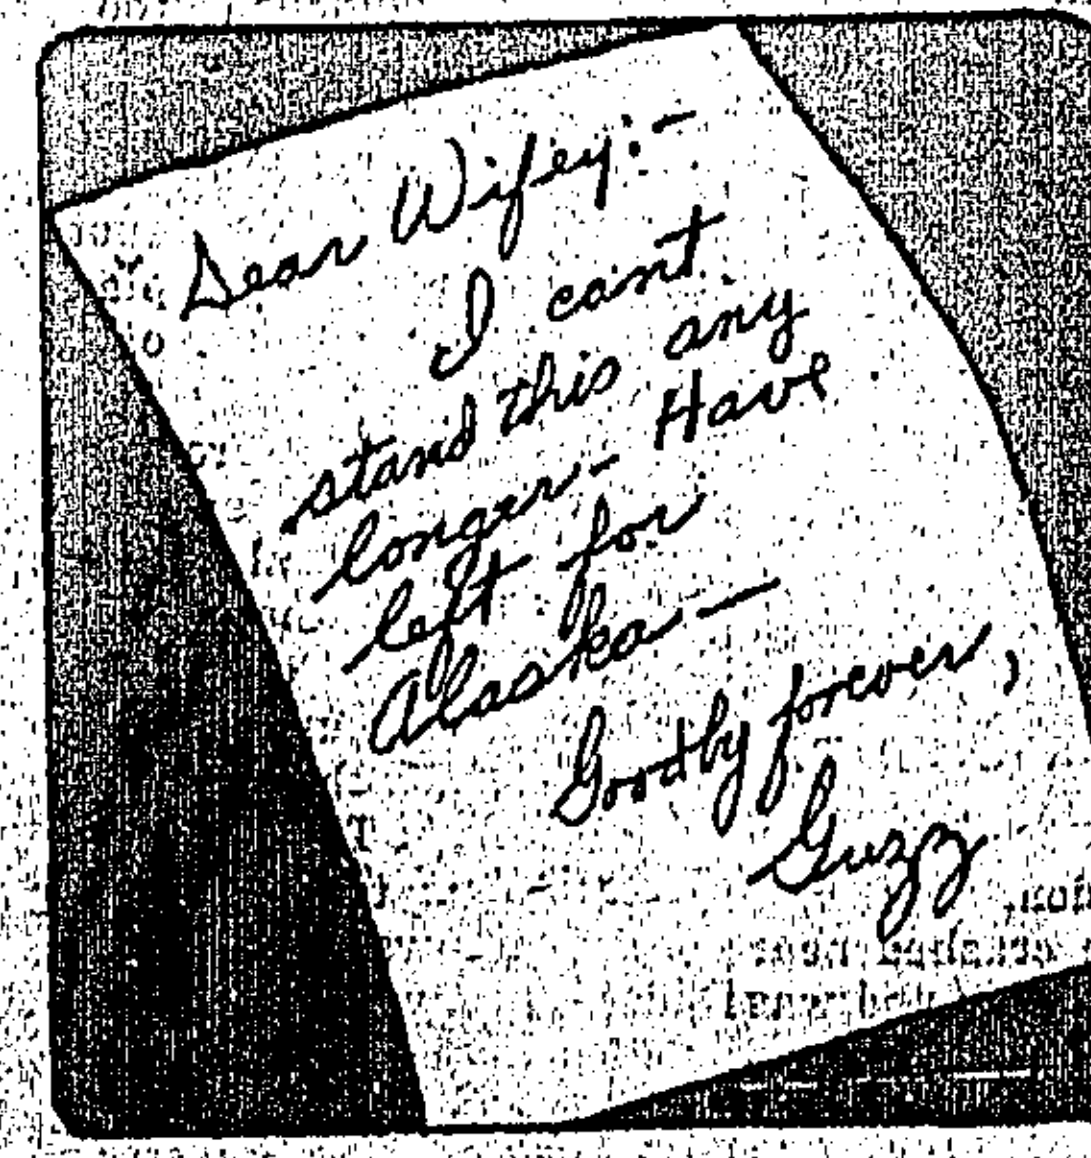 Dear Wifey:-
I cant
stand this any
longer- Have
left for
Alaska—
Goodby forever,
Guzz